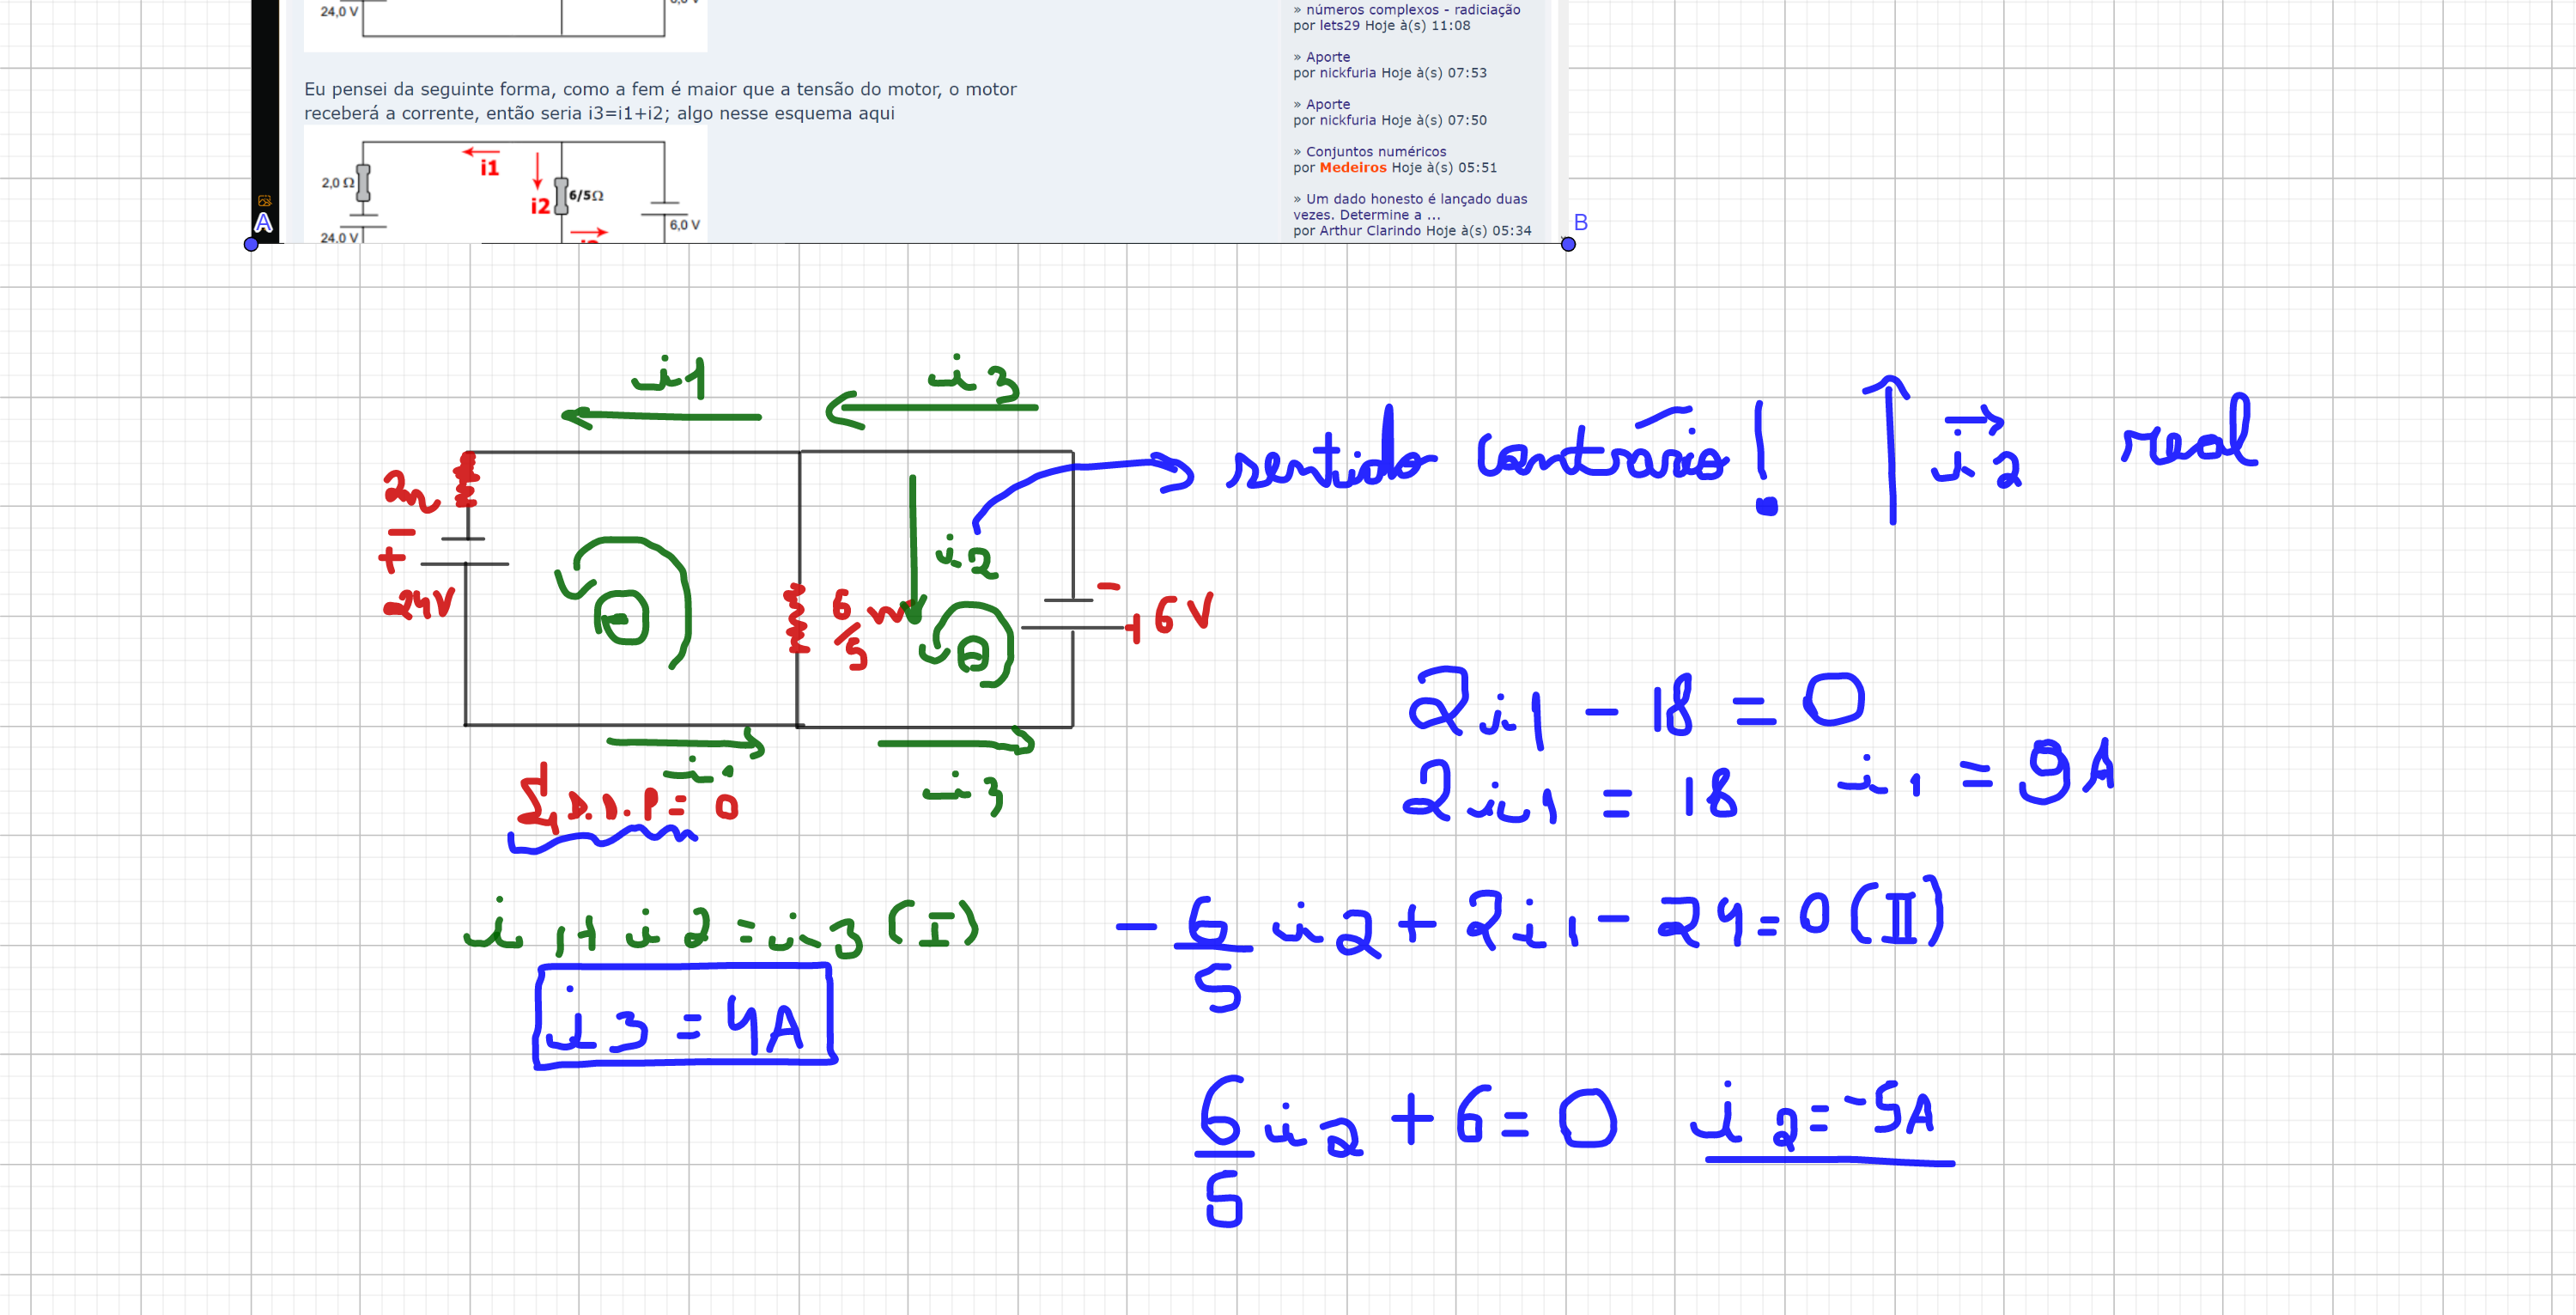 24,0 V
6,0 V
» números complexos - radiciação
por lets29 Hoje à(s) 11:08
» Aporte
por nickfuria Hoje à(s) 07:53
» Aporte
por nickfuria Hoje à(s) 07:50
» Conjuntos numéricos
por Medeiros Hoje à(s) 05:51
» Um dado honesto é lançado duas
vezes. Determine a ...
por Arthur Clarindo Hoje à(s) 05:34
Eu pensei da seguinte forma, como a fem é maior que a tensão do motor, o motor
receberá a corrente, então seria i3=i1+i2; algo nesse esquema aqui
i1
2,0 Ω
6/5Ω
i2
6,0 V
24,0 V
A
B
i1
i3
sentido contrário! i2 real
2Ω
-
+
24V
i2
6/5 Ω
-
+ 6V
i1
i3
Σ D.D.P = 0
2i1 - 18 = 0
2i1 = 18 i1 = 9A
i1 + i2 = i3 (I)
i3 = 4A
- 6/5 i2 + 2i1 - 24 = 0 (II)
6/5 i2 + 6 = 0 i2 = -5A